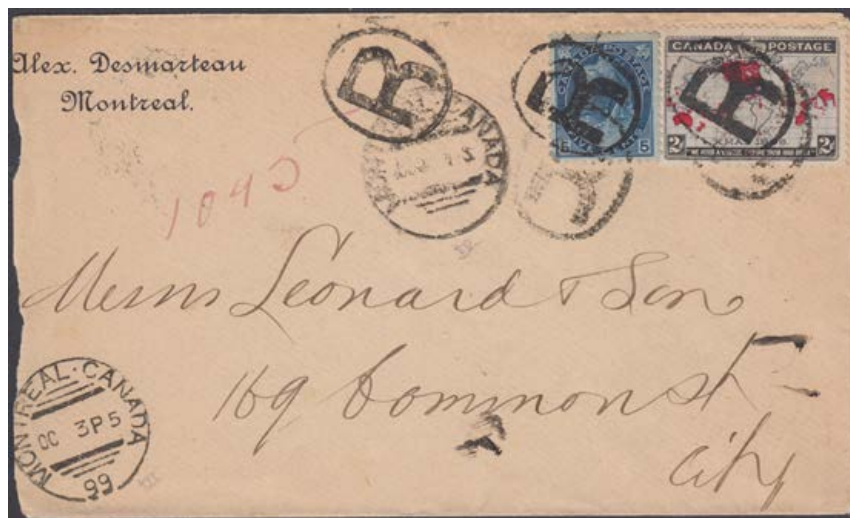 Alex. Desmarteau
Montreal.
R
R
R
CANADA POSTAGE
5
5
CANADA POSTAGE
XMAS 1898
2
2
CANADA
1043
Messrs Leonard & Son
169 Common St
City
MONTREAL · CANADA
OC 3 P 5
99